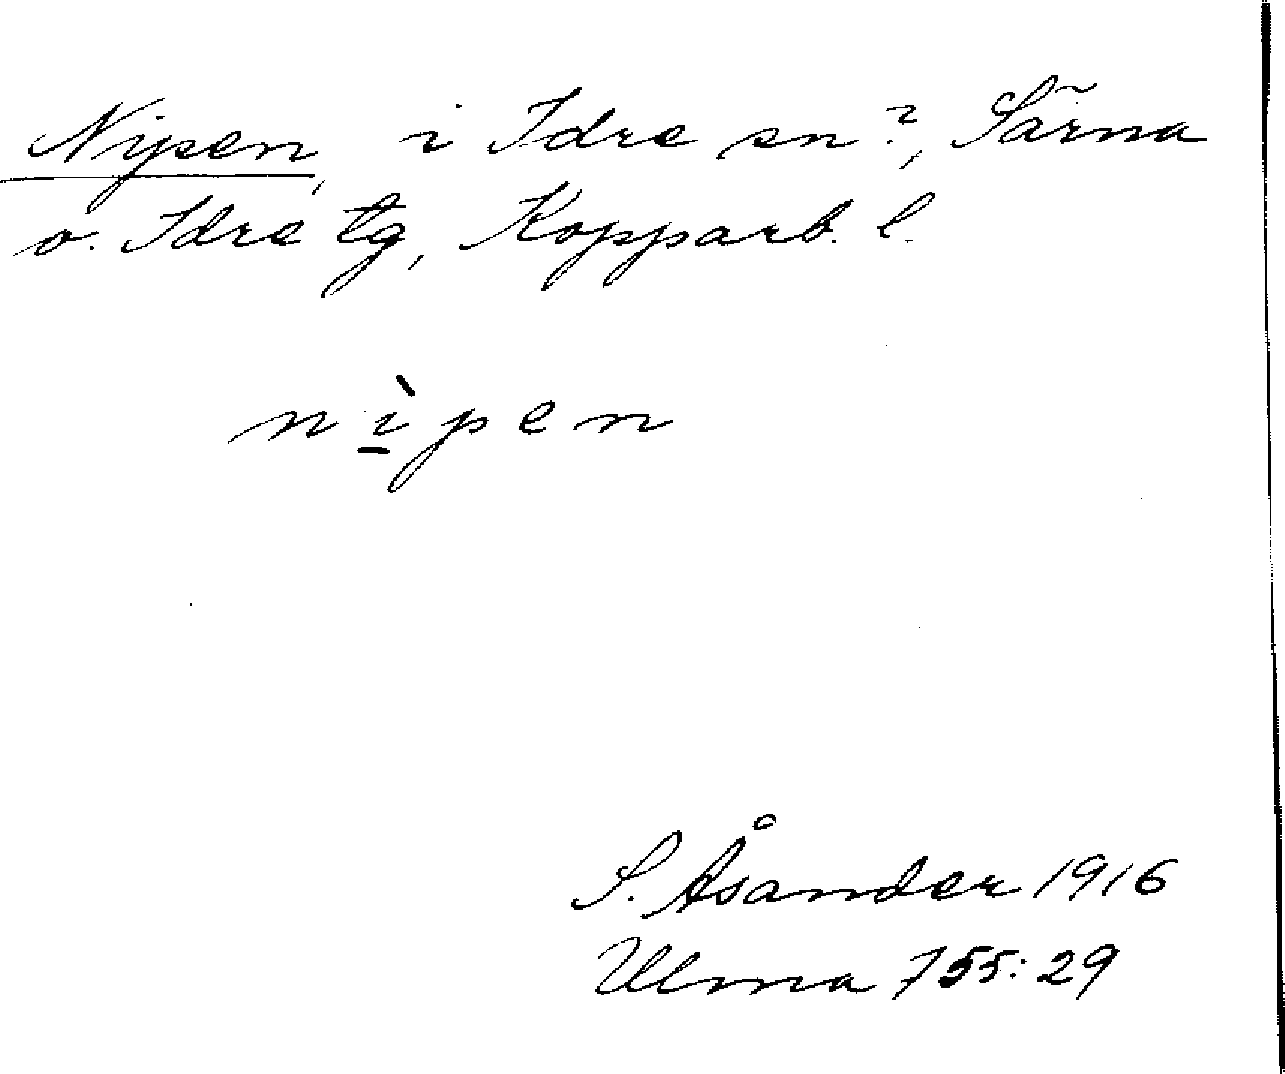 Nipen, i Idre sn?, Särna
o. Idre tg, Kopparb. l.
nìpen
S. Åsander 1916
Ulma 755:29